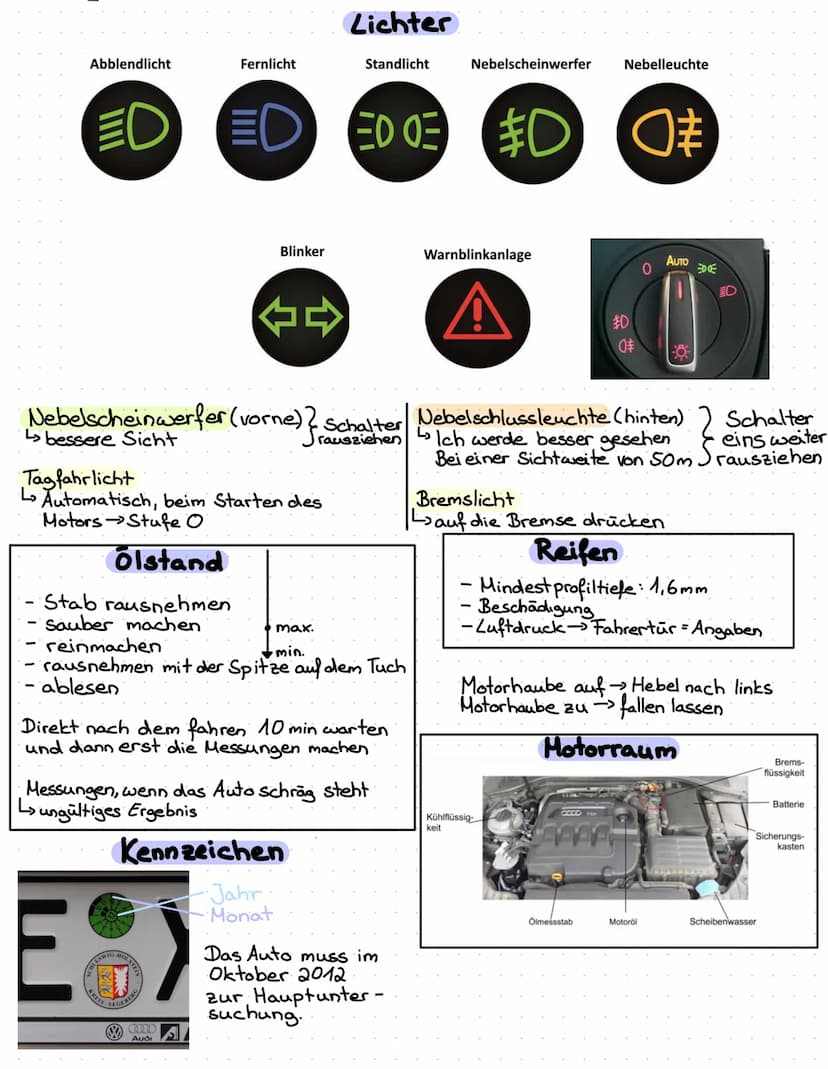 Lichter
Abblendlicht
Fernlicht
Standlicht
Nebelscheinwerfer
Nebelleuchte
Blinker
Warnblinkanlage
0 AUTO
Nebelscheinwerfer (vorne)
↳ bessere Sicht
Schalter
rausziehen
Tagfahrlicht
↳ Automatisch, beim Starten des
Motors → Stufe 0
Nebelschlussleuchte (hinten)
↳ Ich werde besser gesehen
Bei einer Sichtweite von 50m
Schalter
eins weiter
rausziehen
Bremslicht
↳ auf die Bremse drücken
Ölstand
- Stab rausnehmen
- sauber machen
- reinmachen
- rausnehmen mit der Spitze auf dem Tuch
- ablesen
max.
min.
Direkt nach dem fahren 10 min warten
und dann erst die Messungen machen
Messungen, wenn das Auto schräg steht
↳ ungültiges Ergebnis
Reifen
- Mindestprofiltiefe: 1,6mm
- Beschädigung
- Luftdruck → Fahrertür = Angaben
Motorhaube auf → Hebel nach links
Motorhaube zu → fallen lassen
Motorraum
Brems-
flüssigkeit
Batterie
Sicherungs-
kasten
Kühlflüssig-
keit
TDI
Ölmessstab
Motoröl
Scheibenwasser
Kennzeichen
E
Jahr
Monat
SCHLESWIG-HOLSTEIN
KREIS SEGEBERG
Audi
Das Auto muss im
Oktober 2012
zur Hauptunter-
suchung.